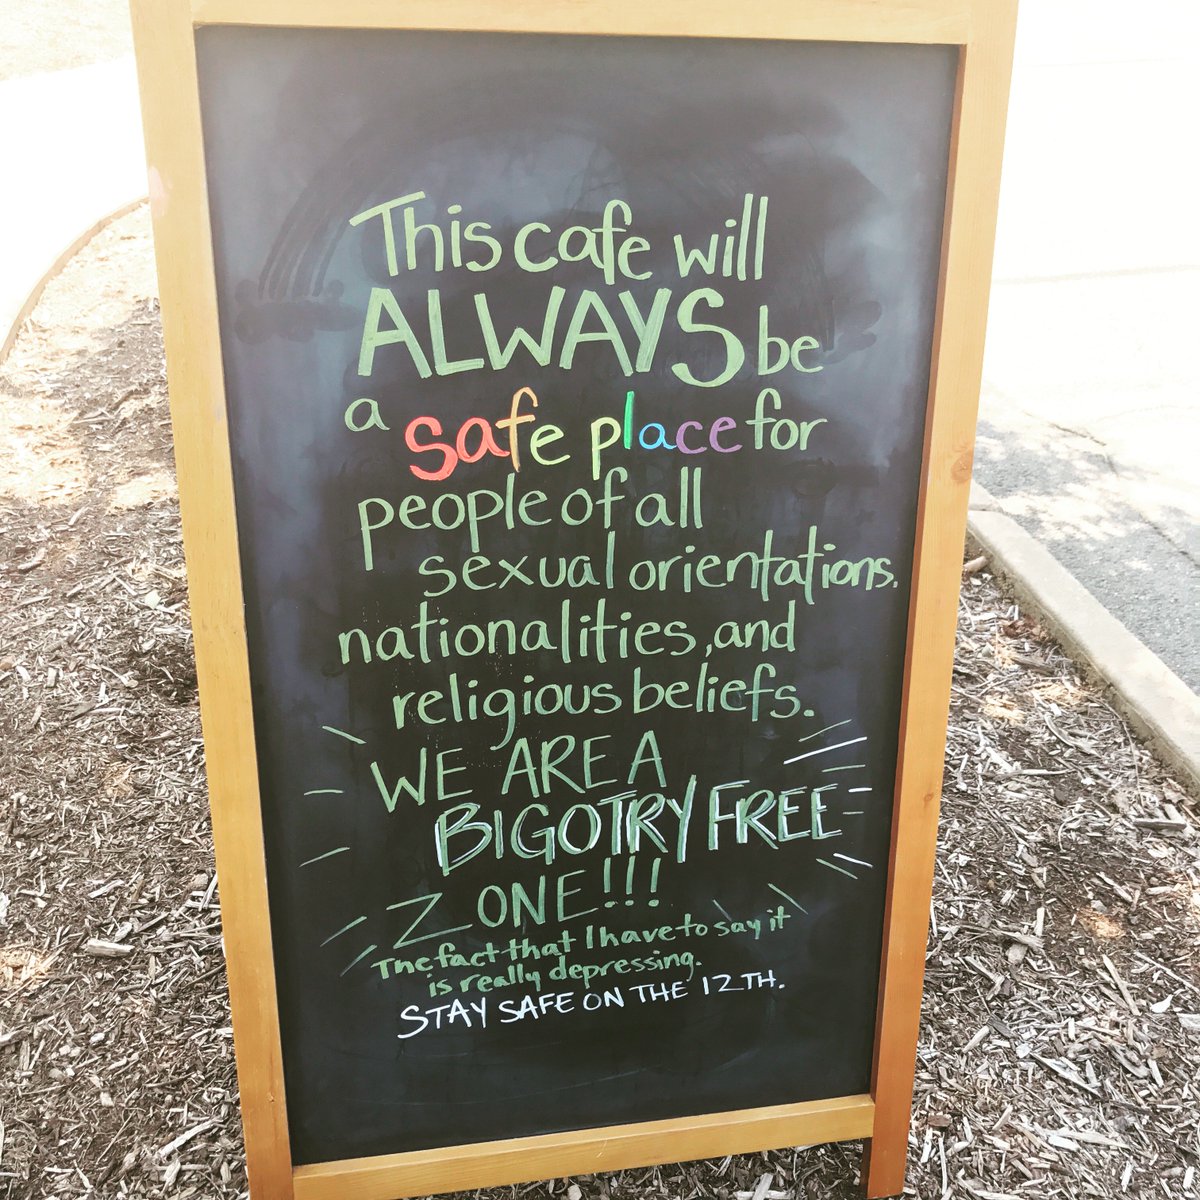 This cafe will
ALWAYS be
a safe place for
people of all
sexual orientations,
nationalities, and
religious beliefs.
WE ARE A
BIGOTRY FREE
ZONE!!!
The fact that I have to say it
is really depressing.
STAY SAFE ON THE 12TH.